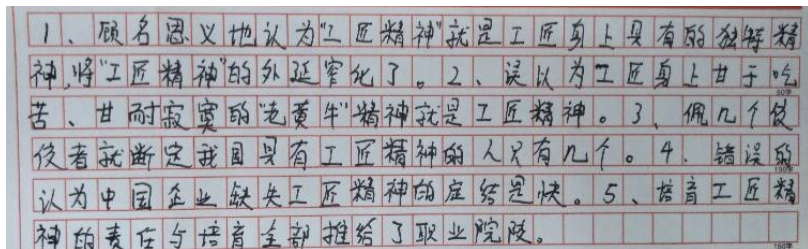 1、顾名思义地认为“工匠精神”就是工匠身上具有的独特精
神,将“工匠精神”的外延窄化了。2、误以为工匠身上甘于吃
苦、甘耐寂寞的“老黄牛”精神就是工匠精神。3、佩几个佼
佼者就断定我国具有工匠精神的人只有几个。4.错误的
认为中国企业缺失工匠精神的症结是快。5、培育工匠精
神的责任与培育全部推给了职业院陵。